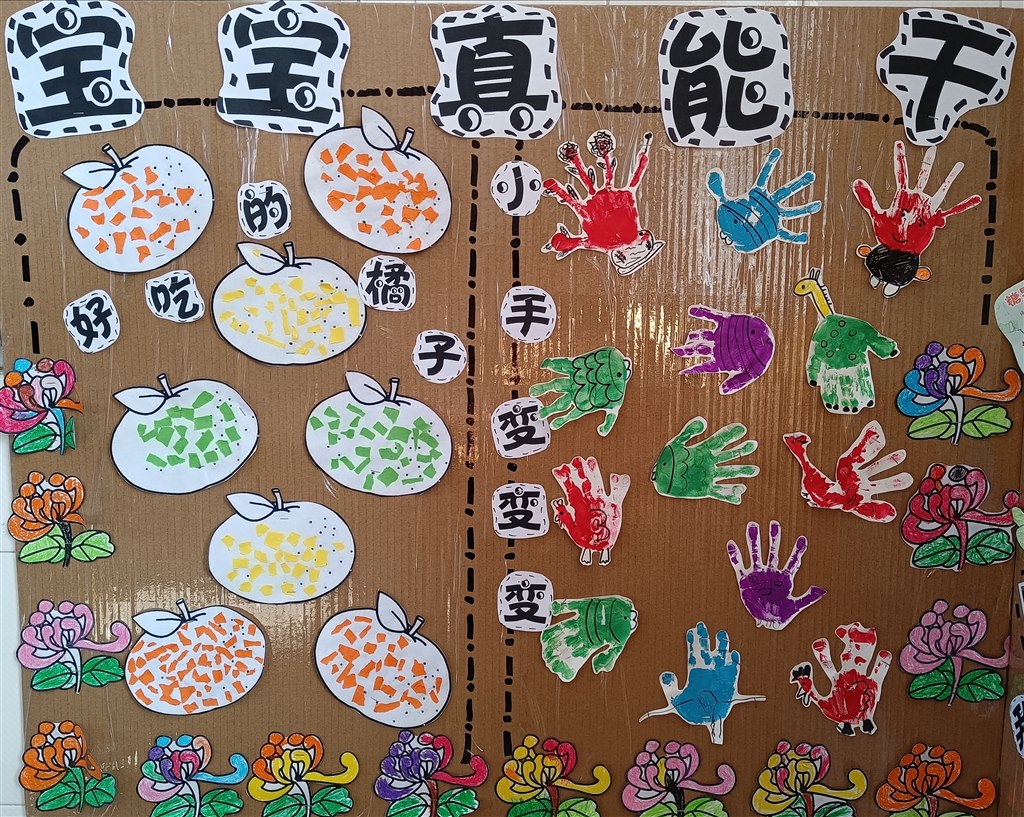 宝宝真能干
好吃的橘子
小手变变变